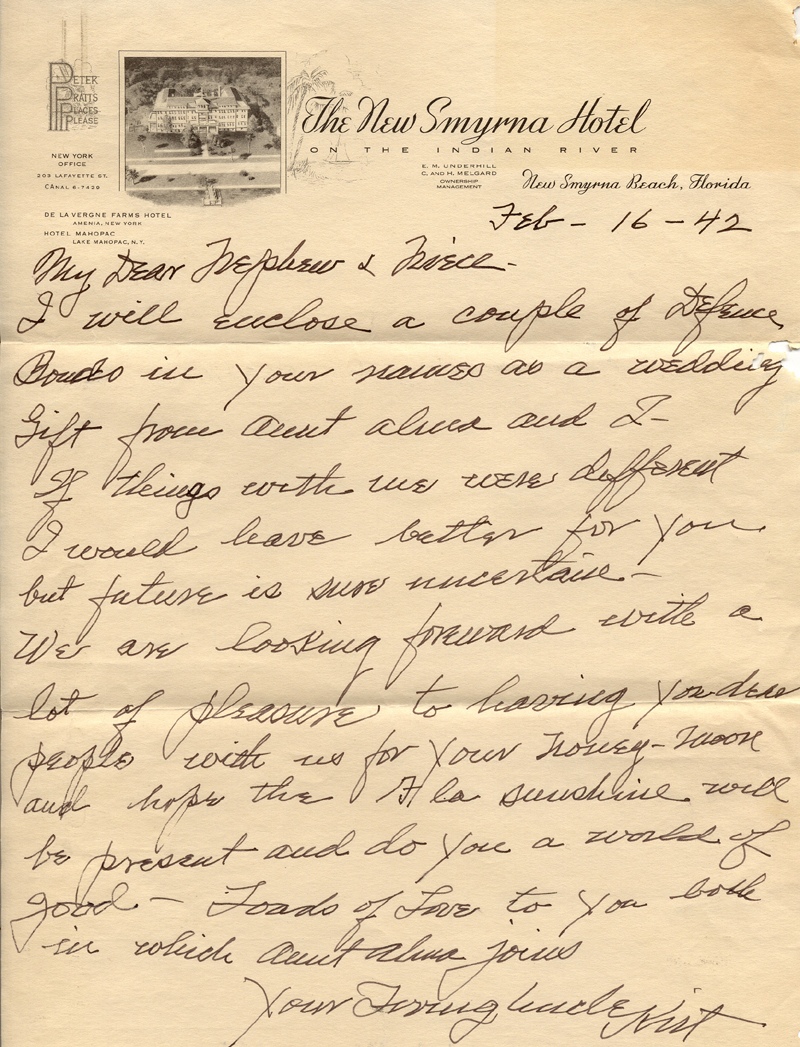 PETER
PRATTS
PLACES
PLEASE
NEW YORK
OFFICE
209 LAFAYETTE ST.
CANAL 6-7420
DE LA VERGNE FARMS HOTEL
AMENIA, NEW YORK
HOTEL MAHOPAC
LAKE MAHOPAC, N.Y.
The New Smyrna Hotel
ON THE INDIAN RIVER
E. M. UNDERHILL
C. AND H. MELGARD
OWNERSHIP
MANAGEMENT
New Smyrna Beach, Florida
Feb - 16 - 42
My Dear Nephew & Niece -
I will enclose a couple of Defence
Bonds in your names as a wedding
Gift from Aunt Alma and I -
If things with me were different
I would have better for you
but future is sure uncertain -
We are looking forward with a
lot of pleasure to having you dear
people with us for your honey-moon
and hope the Fla sunshine will
be present and do you a world of
good - Loads of Love to you both
in which Aunt Alma joins
Your Loving Uncle